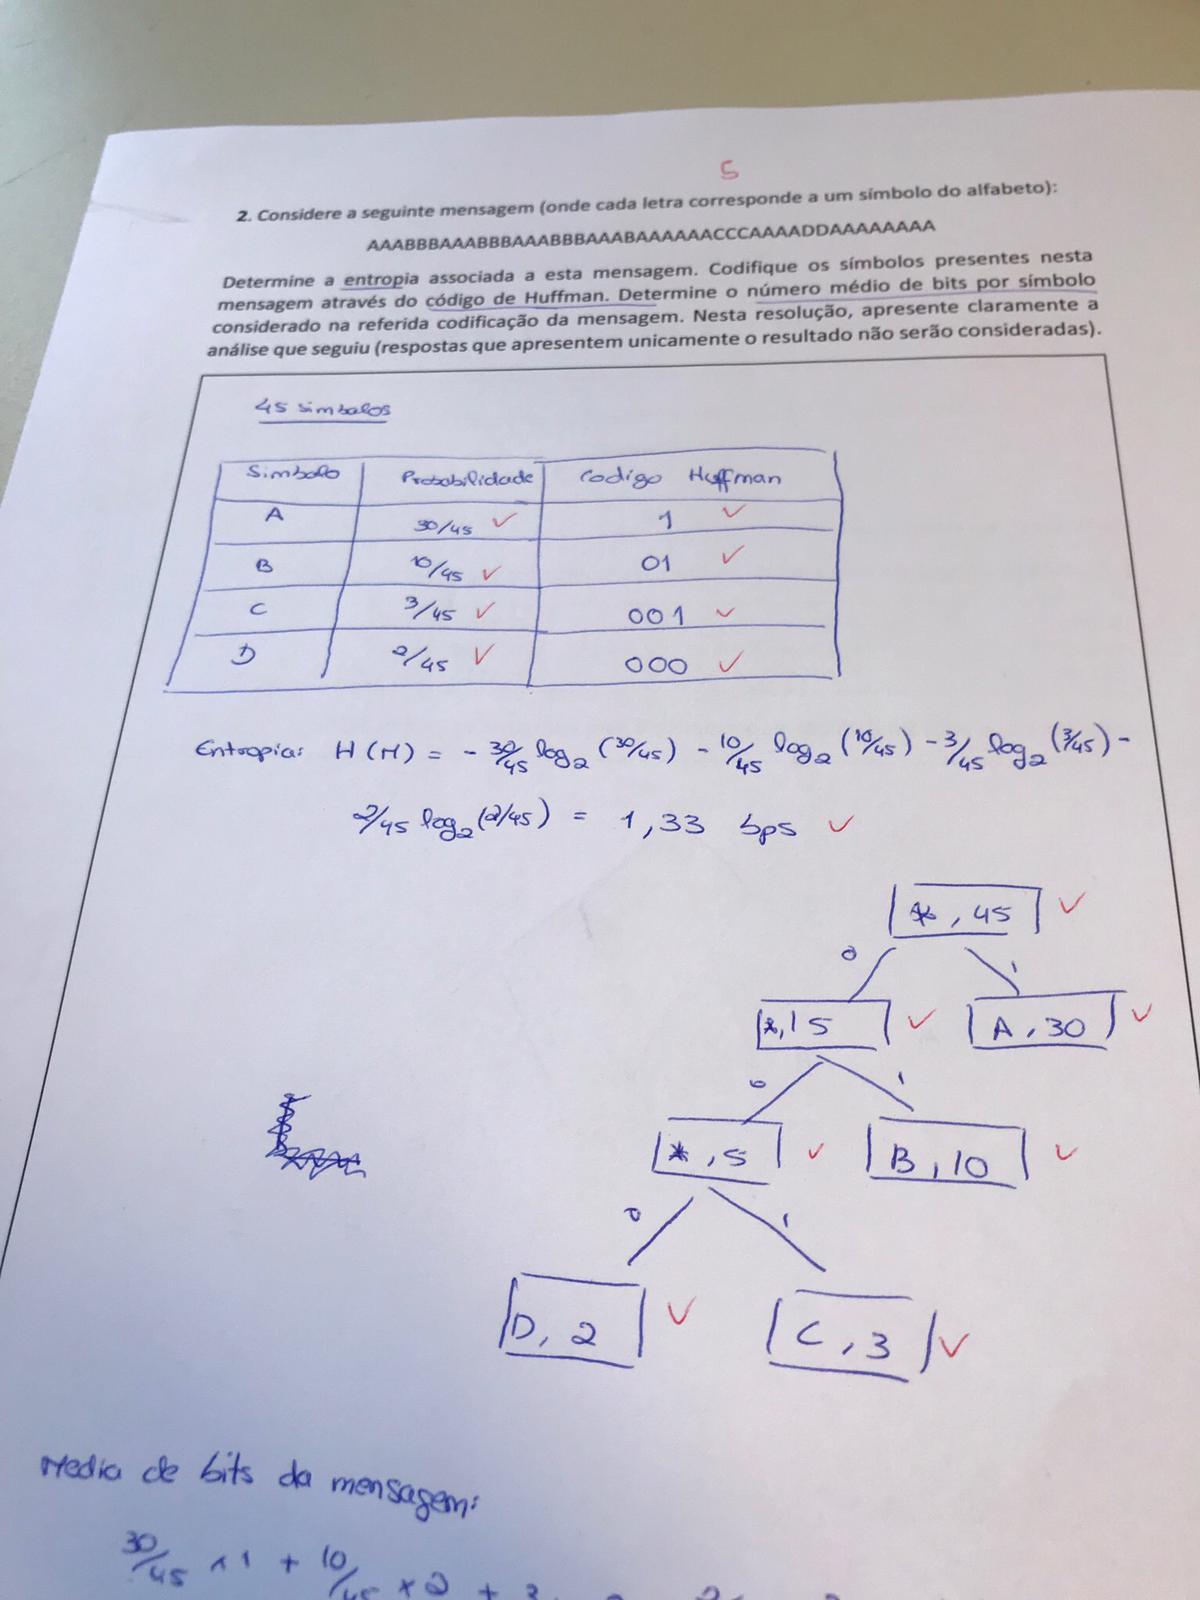 5
2. Considere a seguinte mensagem (onde cada letra corresponde a um símbolo do alfabeto):
AAABBBAAABBBAAABBBAAABAAAAAACCCAAAADDAAAAAAAA
Determine a entropia associada a esta mensagem. Codifique os símbolos presentes nesta
mensagem através do código de Huffman. Determine o número médio de bits por símbolo
considerado na referida codificação da mensagem. Nesta resolução, apresente claramente a
análise que seguiu (respostas que apresentem unicamente o resultado não serão consideradas).
45 simbolos
Simbolo Probabilidade Codigo Huffman
A 30/45 ✓ 1 ✓
B 10/45 ✓ 01 ✓
C 3/45 ✓ 001 ✓
D 2/45 ✓ 000 ✓
Entropia: H(M) = - 30/45 log2 (30/45) - 10/45 log2 (10/45) - 3/45 log2 (3/45) -
2/45 log2 (2/45) = 1,33 bps ✓
*, 45 ✓
0 1
*, 15 ✓ A, 30 ✓
0 1
*, 5 ✓ B, 10 ✓
0 1
D, 2 ✓ C, 3 ✓
Media de bits da mensagem:
30/45 × 1 + 10/45 × 2 +